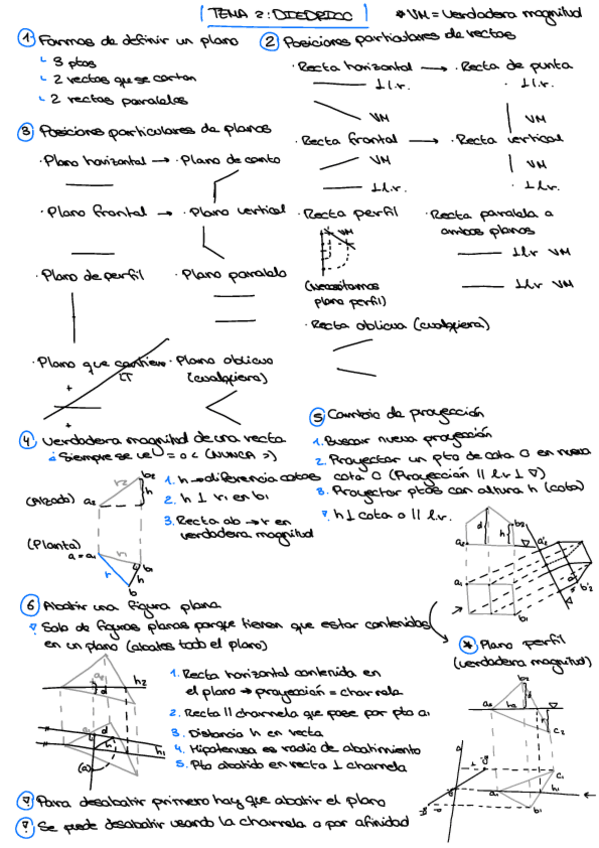 TEMA 2: DIEDRICO
* VM = Verdadera magnitud
1 Formas de definir un plano
↳ 3 ptos
↳ 2 rectas que se cortan
↳ 2 rectas paralelas
2 Posiciones particulares de rectas
· Recta horizontal → · Recta de punta
⊥ l.r.
· ⊥ l.r.
VM
VM
· Recta frontal → · Recta vertical
VM
VM
⊥ l.r.
· ⊥ l.r.
· Recta perfil
· Recta paralela a ambos planos
VM
⊥ l.r VM
⊥ l.r VM
(necesitamos plano perfil)
· Recta oblicua (cualquiera)
3 Posiciones particulares de planos
· Plano horizontal → · Plano de canto
· Plano frontal → · Plano vertical
· Plano de perfil
· Plano paralelo
· Plano que contiene LT
· Plano oblicuo (cualquiera)
4 Verdadera magnitud de una recta
Siempre se ve = o < (NUNCA >)
(Alzado)
(Planta)
a2
b2
r2
h
a = a1
r1
b1
h
r
b
1. h → diferencia cotas
2. h ⊥ r1 en b1
3. Recta ab → r en verdadera magnitud
5 Cambio de proyección
1. Buscar nueva proyección
2. Proyectar un pto de cota 0 en nueva
cota 0 (Proyección // l.r ⊥ ▽)
3. Proyectar ptos con altura h (cota)
▽. h ⊥ cota 0 // l.r.
a2
d
h
b2
a'2
a1
b1
b'2
6 Abatir una figura plana
▽. Solo de figuras planas porque tienen que estar contenidas
en un plano (abates todo el plano)
h2
d
h1
(a)
1. Recta horizontal contenida en
el plano → proyección = charnela
2. Recta // charnela que pase por pto a1
3. Distancia h en recta
4. Hipotenusa es radio de abatimiento
5. Pto abatido en recta ⊥ charnela
* Plano perfil
(verdadera magnitud)
a2
b2
h2
c2
c1
a1
h1
b1
▽ Para desabatir primero hay que abatir el plano
▽. Se puede desabatir usando la charnela o por afinidad